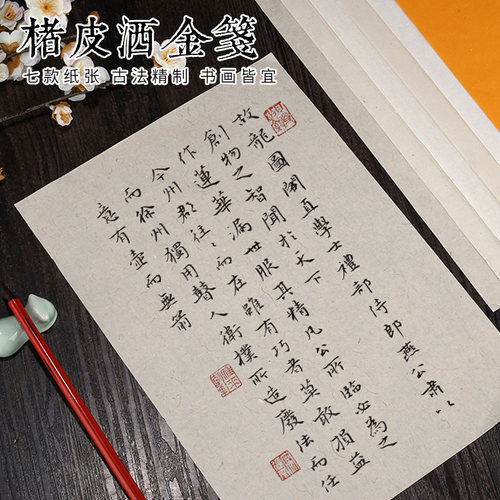 楮皮洒金笺
七款纸张 古法精制 书画皆宜
故龍圖閣直學士禮部侍郎燕公肅以
創物之智聞於天下
作蓮華漏世服其精凡公所臨必為之
今州郡往往而在雖有巧者莫敢損益
而徐州獨用瞽人衛樸所造廢法而任
意有壺而無箭